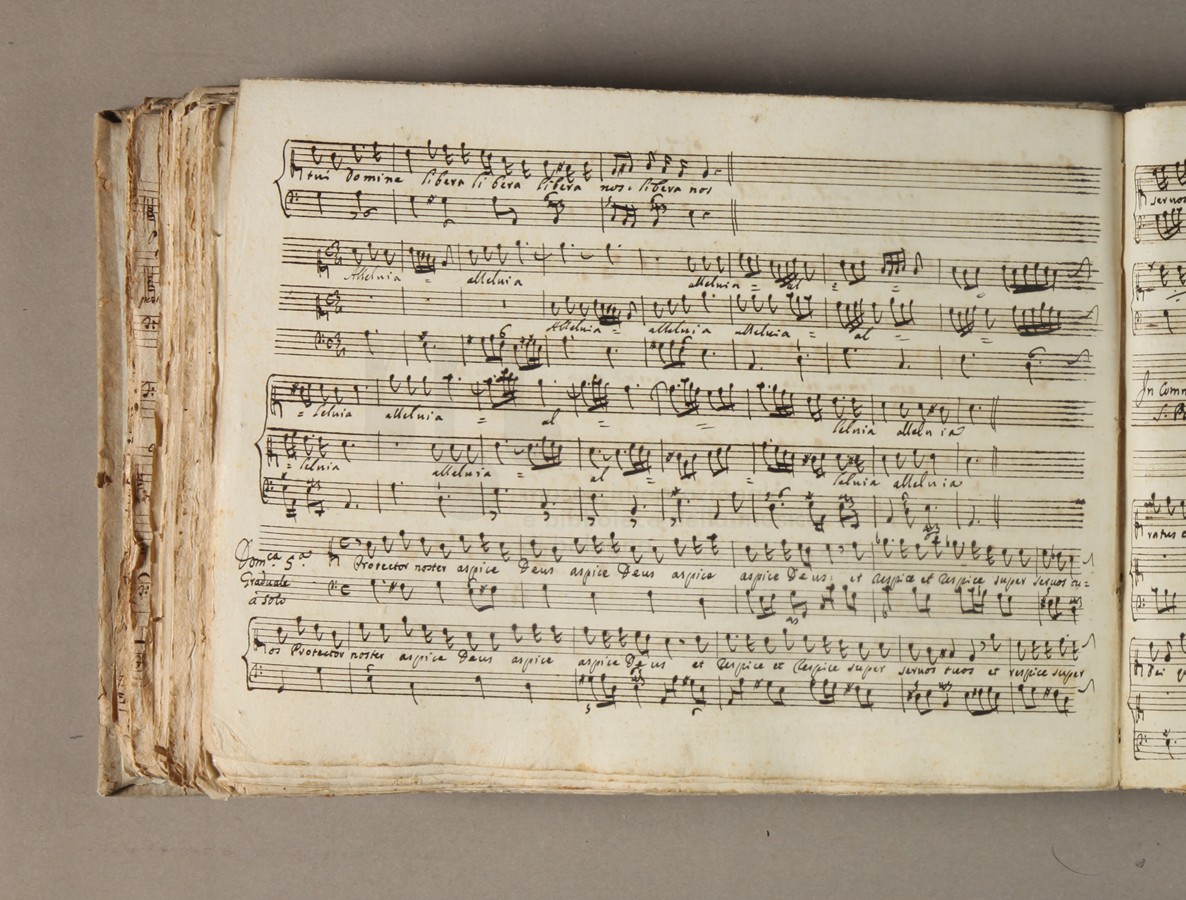 tui Domine libera libera libera nos. libera nos
Alleluia = alleluia alleluia = al = =
Alleluia = alleluia alleluia = al = =
= leluia alleluia = al = = leluia alleluia
= leluia alleluia = al = = leluia alleluia
Dom.ca 5.a
Graduale
à solo
Protector noster aspice Deus aspice Deus aspice aspice Deus: et respice et respice super servos tu=
os Protector noster aspice Deus aspice aspice Deus et respice et respice super servos tuos et respice super
servos
In Comm
S. P